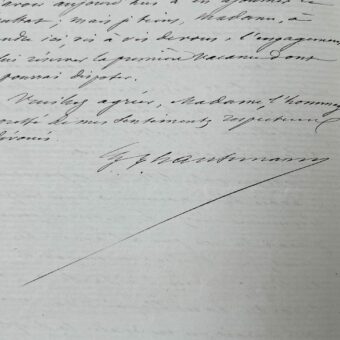 avoir aujourd'hui à en ajourner le
; mais je tiens, Madame, à
ici, vis à vis de vous, l'engagement
lui réserver la première vacance dont
pourrai disposer.
Veuillez agréer, Madame, l'hommage
de mes sentiments respectueux
dévoués
G. E. Haussmann